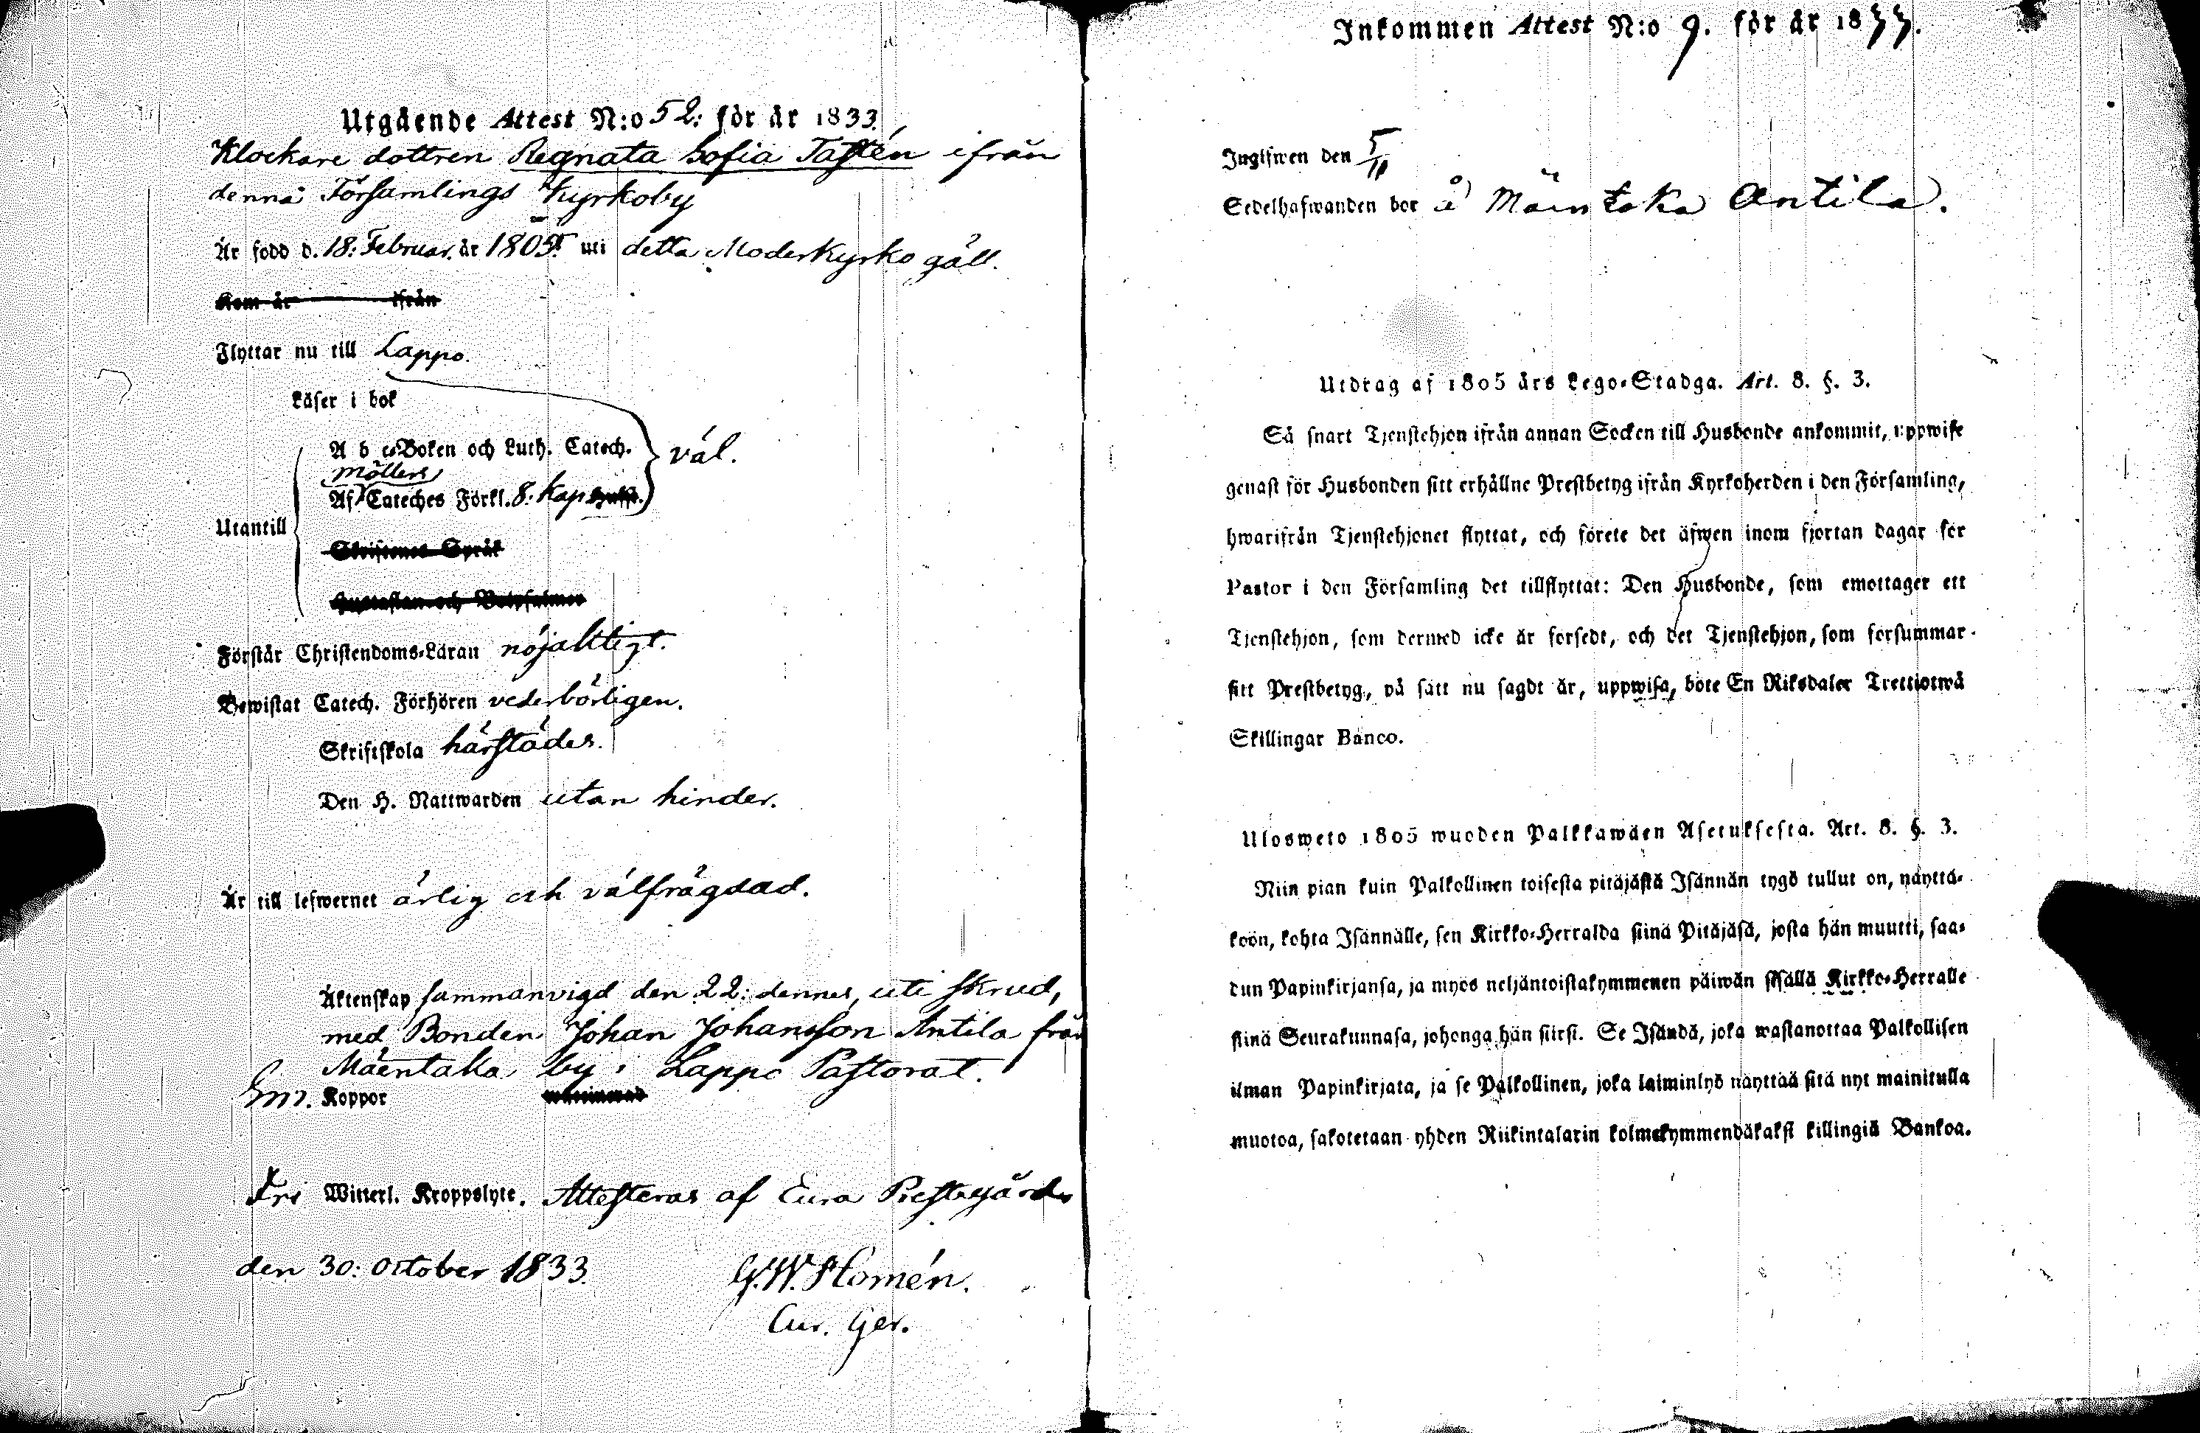 Utgående Attest N:o 52: för år 1833.
Klockare dottren Regnata Sofia Tastén ifrån
denna Församlings Kyrkoby
Är född d. 18: Februar. år 1805. uti detta Moderkyrko gäll.
Kom år ifrån
Flyttar nu till Lappo.
Läser i bok
A b c-Boken och Luth. Catech. väl.
Möllers
Af Cateches Förkl. 8: Kap
Utantill
Skriftenes Språk
Hustaflan och Botpsalmer
Förstår Christendoms-Läran nöjaktigt.
Bewistat Catech. Förhören vederbörligen.
Skriftskola härstädes.
Den H. Nattwarden utan hinder.
Är till lefwernet ärlig och välfrägdad.
Äktenskap sammanvigd den 22: dennes, uti skrud,
med Bonden Johan Johansson Antila från
Mäentaka by i Lappo Pastorat.
Koppor
Fri Witterl. Kroppslyte. Attesteras af Eura Prestegård
den 30: October 1833.
G.W. Homén.
Cur. Ger.
Inkommen Attest N:o 9. för år 1833.
Ingifwen den 5/11
Sedelhafwanden bor å Mäntaka Antila.
Utdrag af 1805 års Lego-Stadga. Art. 8. §. 3.
Så snart Tjenstehjon ifrån annan Socken till Husbonde ankommit, uppwise
genast för Husbonden sitt erhållne Prestbetyg ifrån Kyrkoherden i den Församling,
hwarifrån Tjenstehjonet flyttat, och förete det äfwen inom fjortan dagar för
Pastor i den Församling det tillflyttat: Den Husbonde, som emottager ett
Tjenstehjon, som dermed icke är försedt, och det Tjenstehjon, som försummar
sitt Prestbetyg, på sätt nu sagdt är, uppwisa, böte En Riksdaler Trettiotwå
Skillingar Banco.
Ulosweto 1805 wuoden Palkkawäen Asetuksesta. Art. 8. §. 3.
Niin pian kuin Palkollinen toisesta pitäjästä Isännän tygö tullut on, näyttä-
köön, kohta Isännälle, sen Kirkko-Herralda siinä Pitäjäsä, josta hän muutti, saa-
dun Papinkirjansa, ja myös neljäntoistakymmenen päiwän sisällä Kirkko-Herralle
siinä Seurakunnasa, johonga hän siirsi. Se Isändä, joka wastanottaa Palkollisen
ilman Papinkirjata, ja se Palkollinen, joka laiminlyö näyttää sitä nyt mainitulla
muotoa, sakotetaan yhden Riikintalarin kolmekymmendäkaksi killingiä Bankoa.